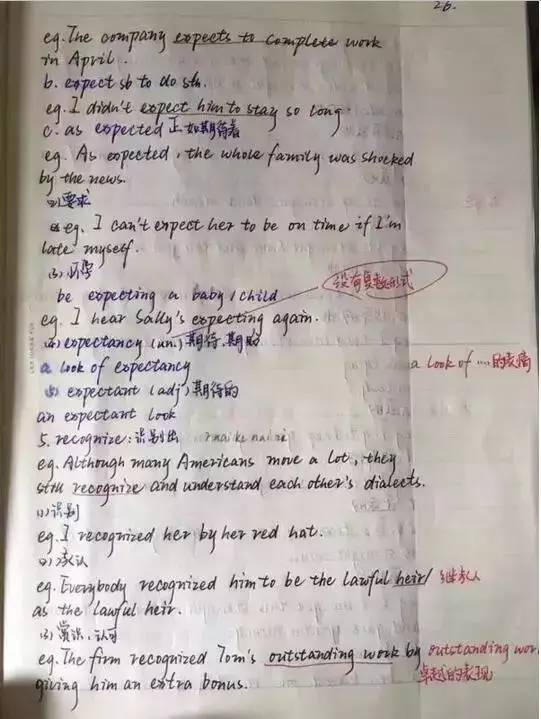 26.
eg. The company expects to complete work
in April.
b. expect sb to do sth.
eg. I didn't expect him to stay so long
c. as expected 正如期待者
eg. As expected, the whole family was shocked
by the news.
(2) 要求
eg. I can't expect her to be on time if I'm
late myself.
(3) 怀孕
没有复数形式
be expecting a baby / child
eg. I hear Sally's expecting again.
(4) expectancy (un.) 期待, 期盼
a look of expectancy
a look of .... 的表情
(5) expectant (adj) 期待的
an expectant look
5. recognize: 识别出
eg. Although many Americans move a lot, they
still recognize and understand each other's dialects.
(1) 识别
eg. I recognized her by her red hat.
(2) 承认
eg. Everybody recognized him to be the lawful heir/ 继承人
as the lawful heir.
(3) 赏识, 认可
eg. The firm recognized Tom's outstanding work by outstanding wor
giving him an extra bonus. 卓越的表现